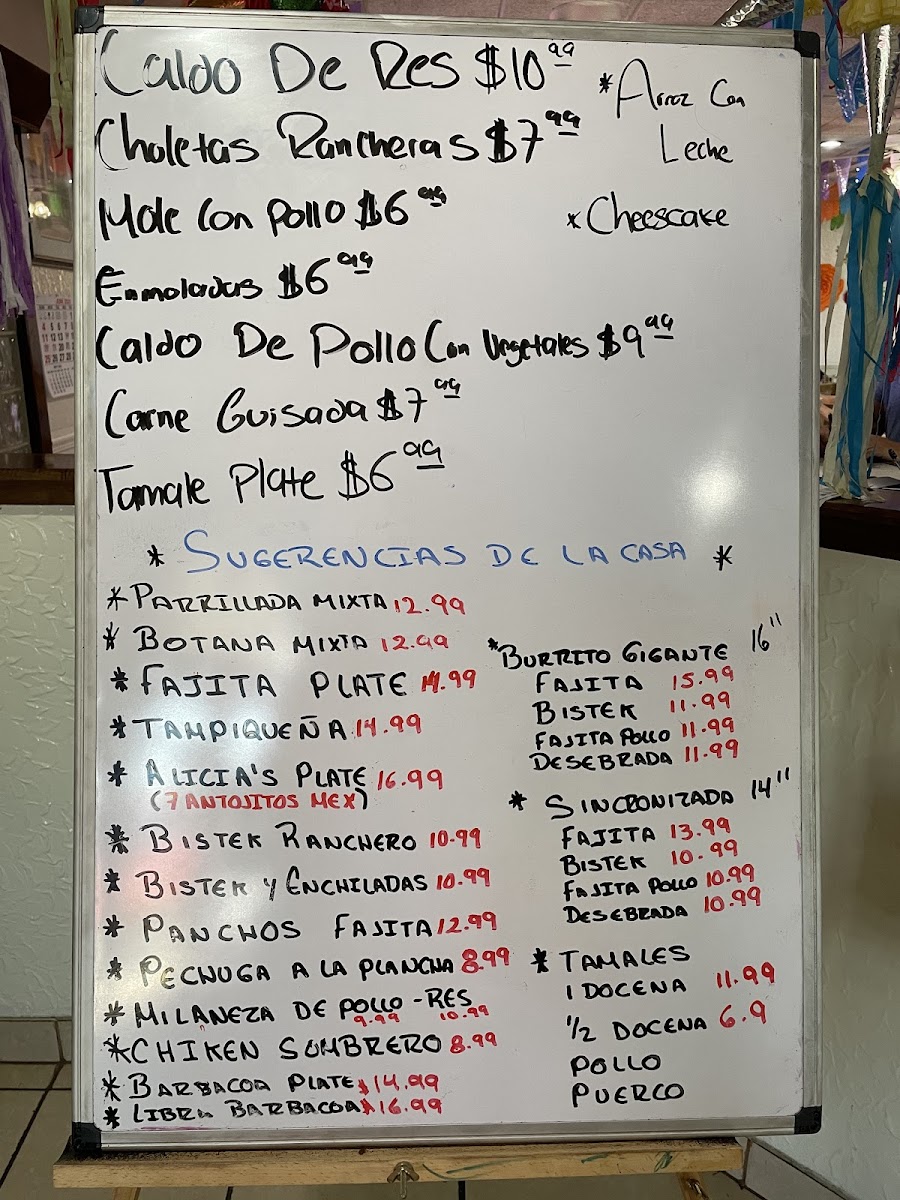 Caldo De Res $10.99
Choletas Rancheras $7.99
Mole Con Pollo $6.99
Enmoladas $6.99
Caldo De Pollo Con Vegetales $9.99
Carne Guisada $7.99
Tamale Plate $6.99
* Arroz Con
Leche
* Cheescake
* SUGERENCIAS DE LA CASA *
* PARRILLADA MIXTA 12.99
* BOTANA MIXTA 12.99
* FAJITA PLATE 14.99
* TAMPIQUEÑA 14.99
* ALICIA'S PLATE 16.99
(7 ANTOJITOS MEX)
* BISTEK RANCHERO 10.99
* BISTEK Y ENCHILADAS 10.99
* PANCHOS FAJITA 12.99
* PECHUGA A LA PLANCHA 8.99
* MILANEZA DE POLLO - RES
9.99 10.99
* CHIKEN SOMBRERO 8.99
* BARBACOA PLATE $14.99
* LIBRA BARBACOA $16.99
* BURRITO GIGANTE 16"
FAJITA 15.99
BISTEK 11.99
FAJITA POLLO 11.99
DESEBRADA 11.99
* SINCRONIZADA 14"
FAJITA 13.99
BISTEK 10.99
FAJITA POLLO 10.99
DESEBRADA 10.99
* TAMALES
1 DOCENA 11.99
1/2 DOCENA 6.9
POLLO
PUERCO